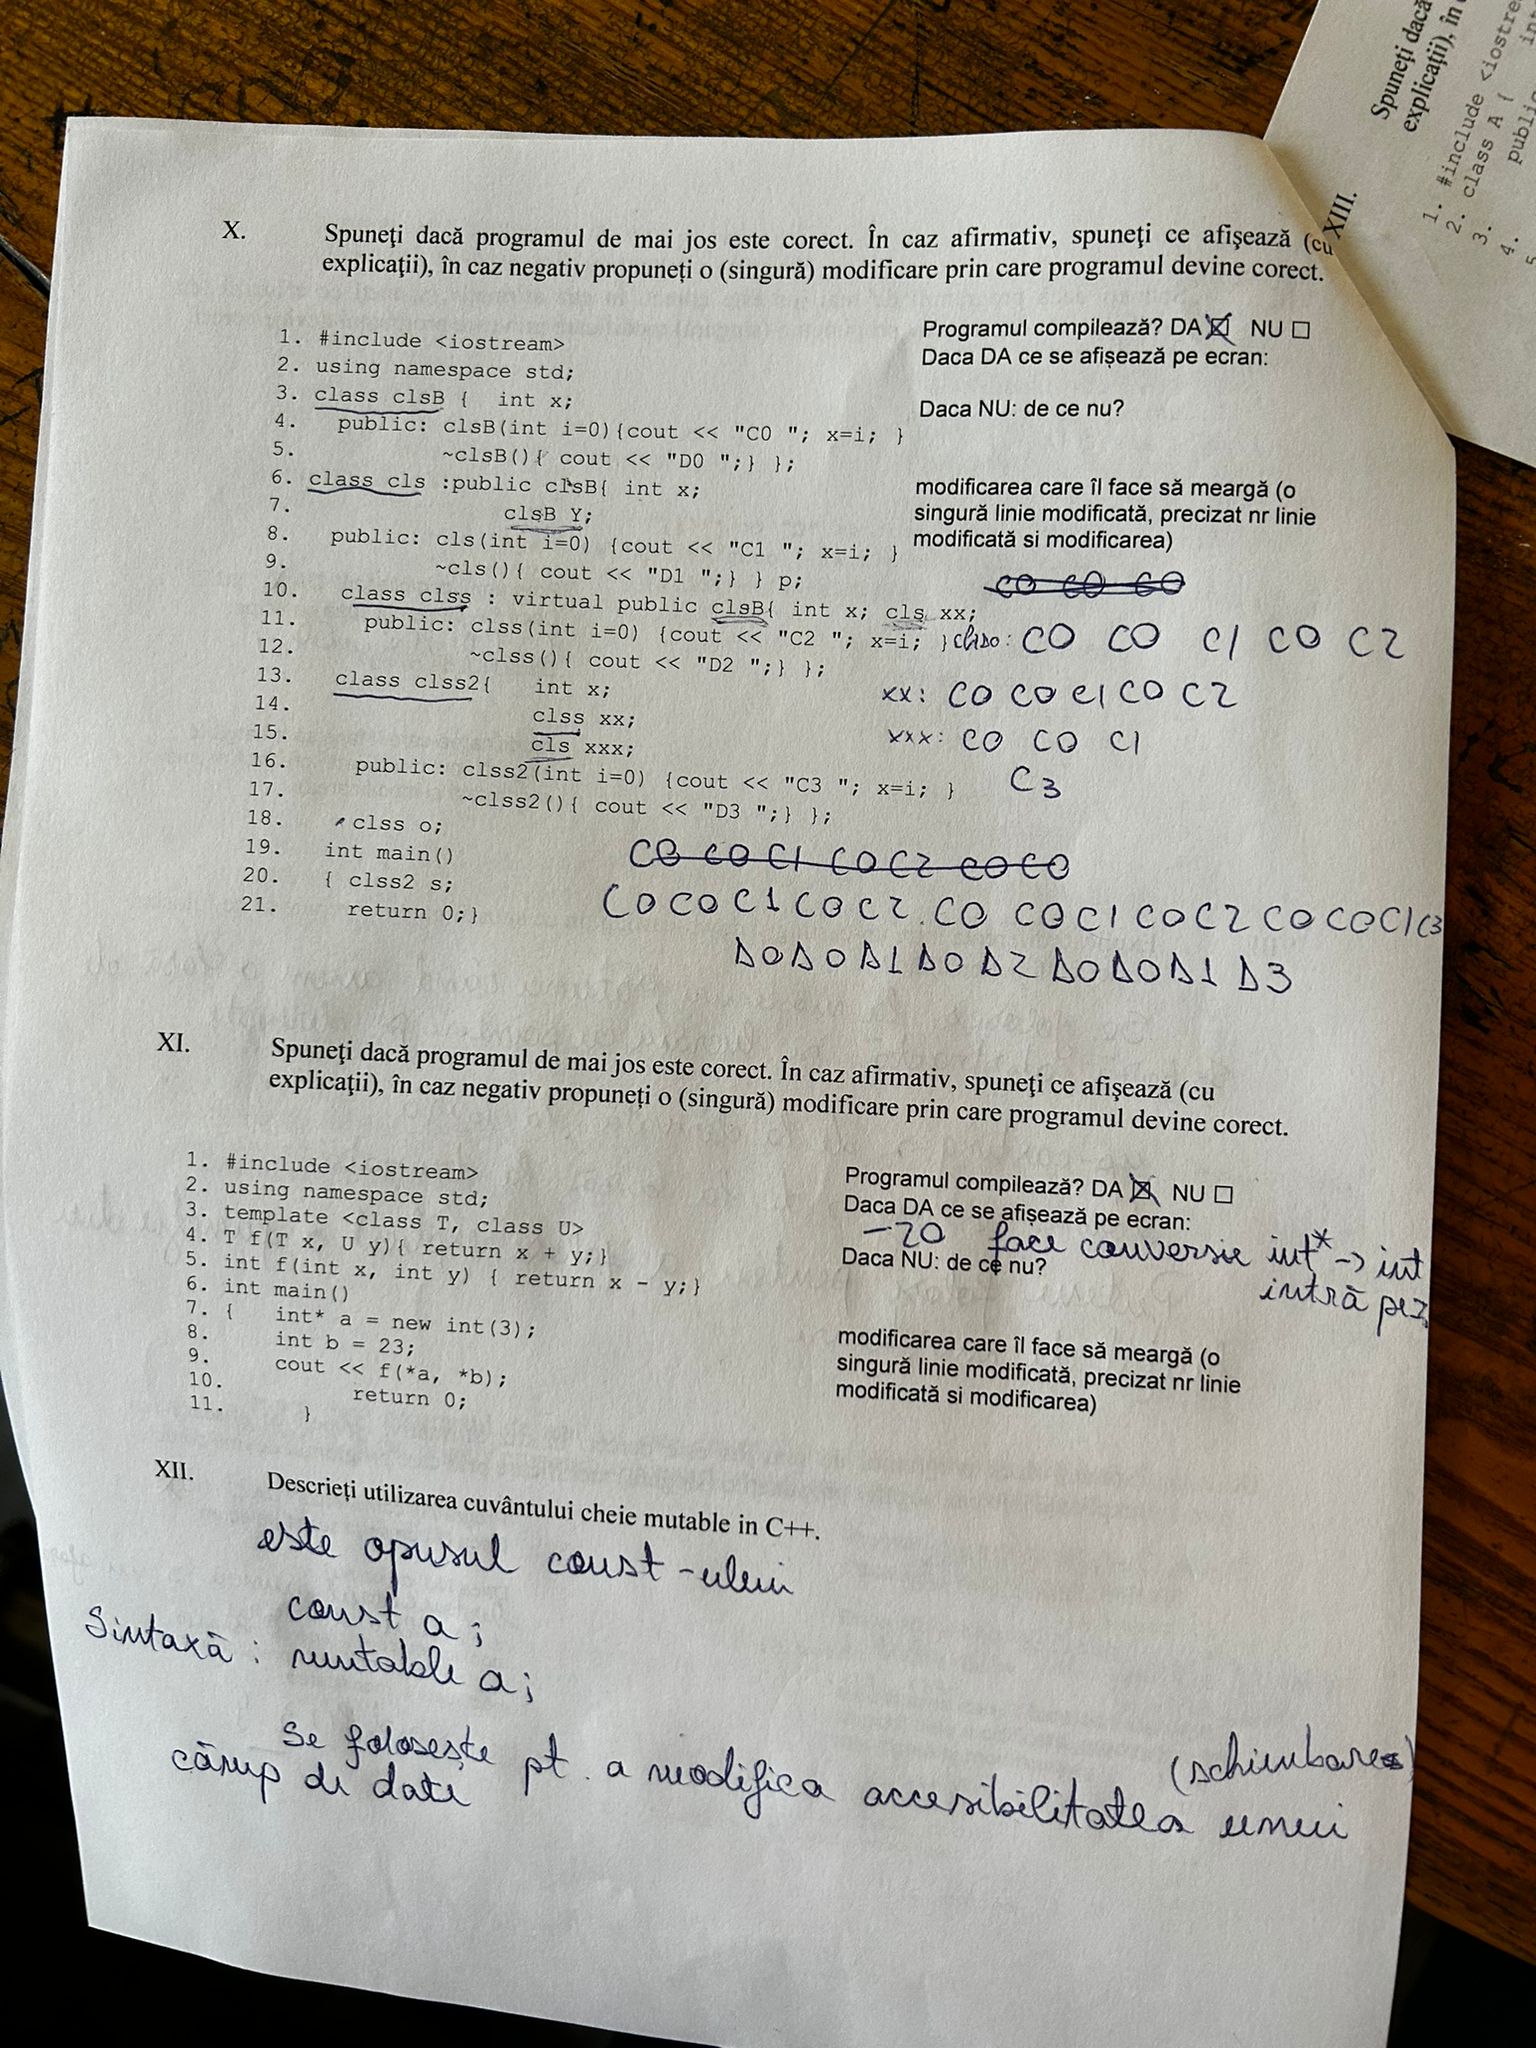 X. Spuneţi dacă programul de mai jos este corect. În caz afirmativ, spuneţi ce afişează (cu
explicaţii), în caz negativ propuneți o (singură) modificare prin care programul devine corect.
1. #include <iostream>
2. using namespace std;
3. class clsB { int x;
4. public: clsB(int i=0){cout << "C0 "; x=i; }
5. ~clsB(){ cout << "D0 ";} };
6. class cls :public clsB{ int x;
7. clsB Y;
8. public: cls(int i=0) {cout << "C1 "; x=i; }
9. ~cls(){ cout << "D1 ";} } p;
10. class clss : virtual public clsB{ int x; cls xx;
11. public: clss(int i=0) {cout << "C2 "; x=i; }
12. ~clss(){ cout << "D2 ";} };
13. class clss2{ int x;
14. clss xx;
15. cls xxx;
16. public: clss2(int i=0) {cout << "C3 "; x=i; }
17. ~clss2(){ cout << "D3 ";} };
18. clss o;
19. int main()
20. { clss2 s;
21. return 0;}
Programul compilează? DA NU
Daca DA ce se afișează pe ecran:
Daca NU: de ce nu?
modificarea care îl face să meargă (o
singură linie modificată, precizat nr linie
modificată si modificarea)
C0 C0 C0
C0 C0 C1 C0 C2
xx: C0 C0 C1 C0 C2
xxx: C0 C0 C1
C3
C0 C0 C1 C0 C2 C0 C0
C0 C0 C1 C0 C2 C0 C0 C1 C0 C2 C0 C0 C1 C3
D0 D0 D1 D0 D2 D0 D0 D1 D3
XI. Spuneţi dacă programul de mai jos este corect. În caz afirmativ, spuneţi ce afişează (cu
explicaţii), în caz negativ propuneți o (singură) modificare prin care programul devine corect.
1. #include <iostream>
2. using namespace std;
3. template <class T, class U>
4. T f(T x, U y){ return x + y;}
5. int f(int x, int y) { return x - y;}
6. int main()
7. { int* a = new int(3);
8. int b = 23;
9. cout << f(*a, *b);
10. return 0;
11. }
Programul compilează? DA NU
Daca DA ce se afișează pe ecran:
-20 face conversie int* -> int
intră pe
Daca NU: de ce nu?
modificarea care îl face să meargă (o
singură linie modificată, precizat nr linie
modificată si modificarea)
XII. Descrieți utilizarea cuvântului cheie mutable in C++.
este opusul const-ului
const a;
Sintaxă: mutable a;
Se folosește pt. a modifica accesibilitatea (schimbarea) unui
câmp de date
XIII.
Spuneți dacă
explicaţii), în
1. #include <iostre
2. class A {
3. public
4.